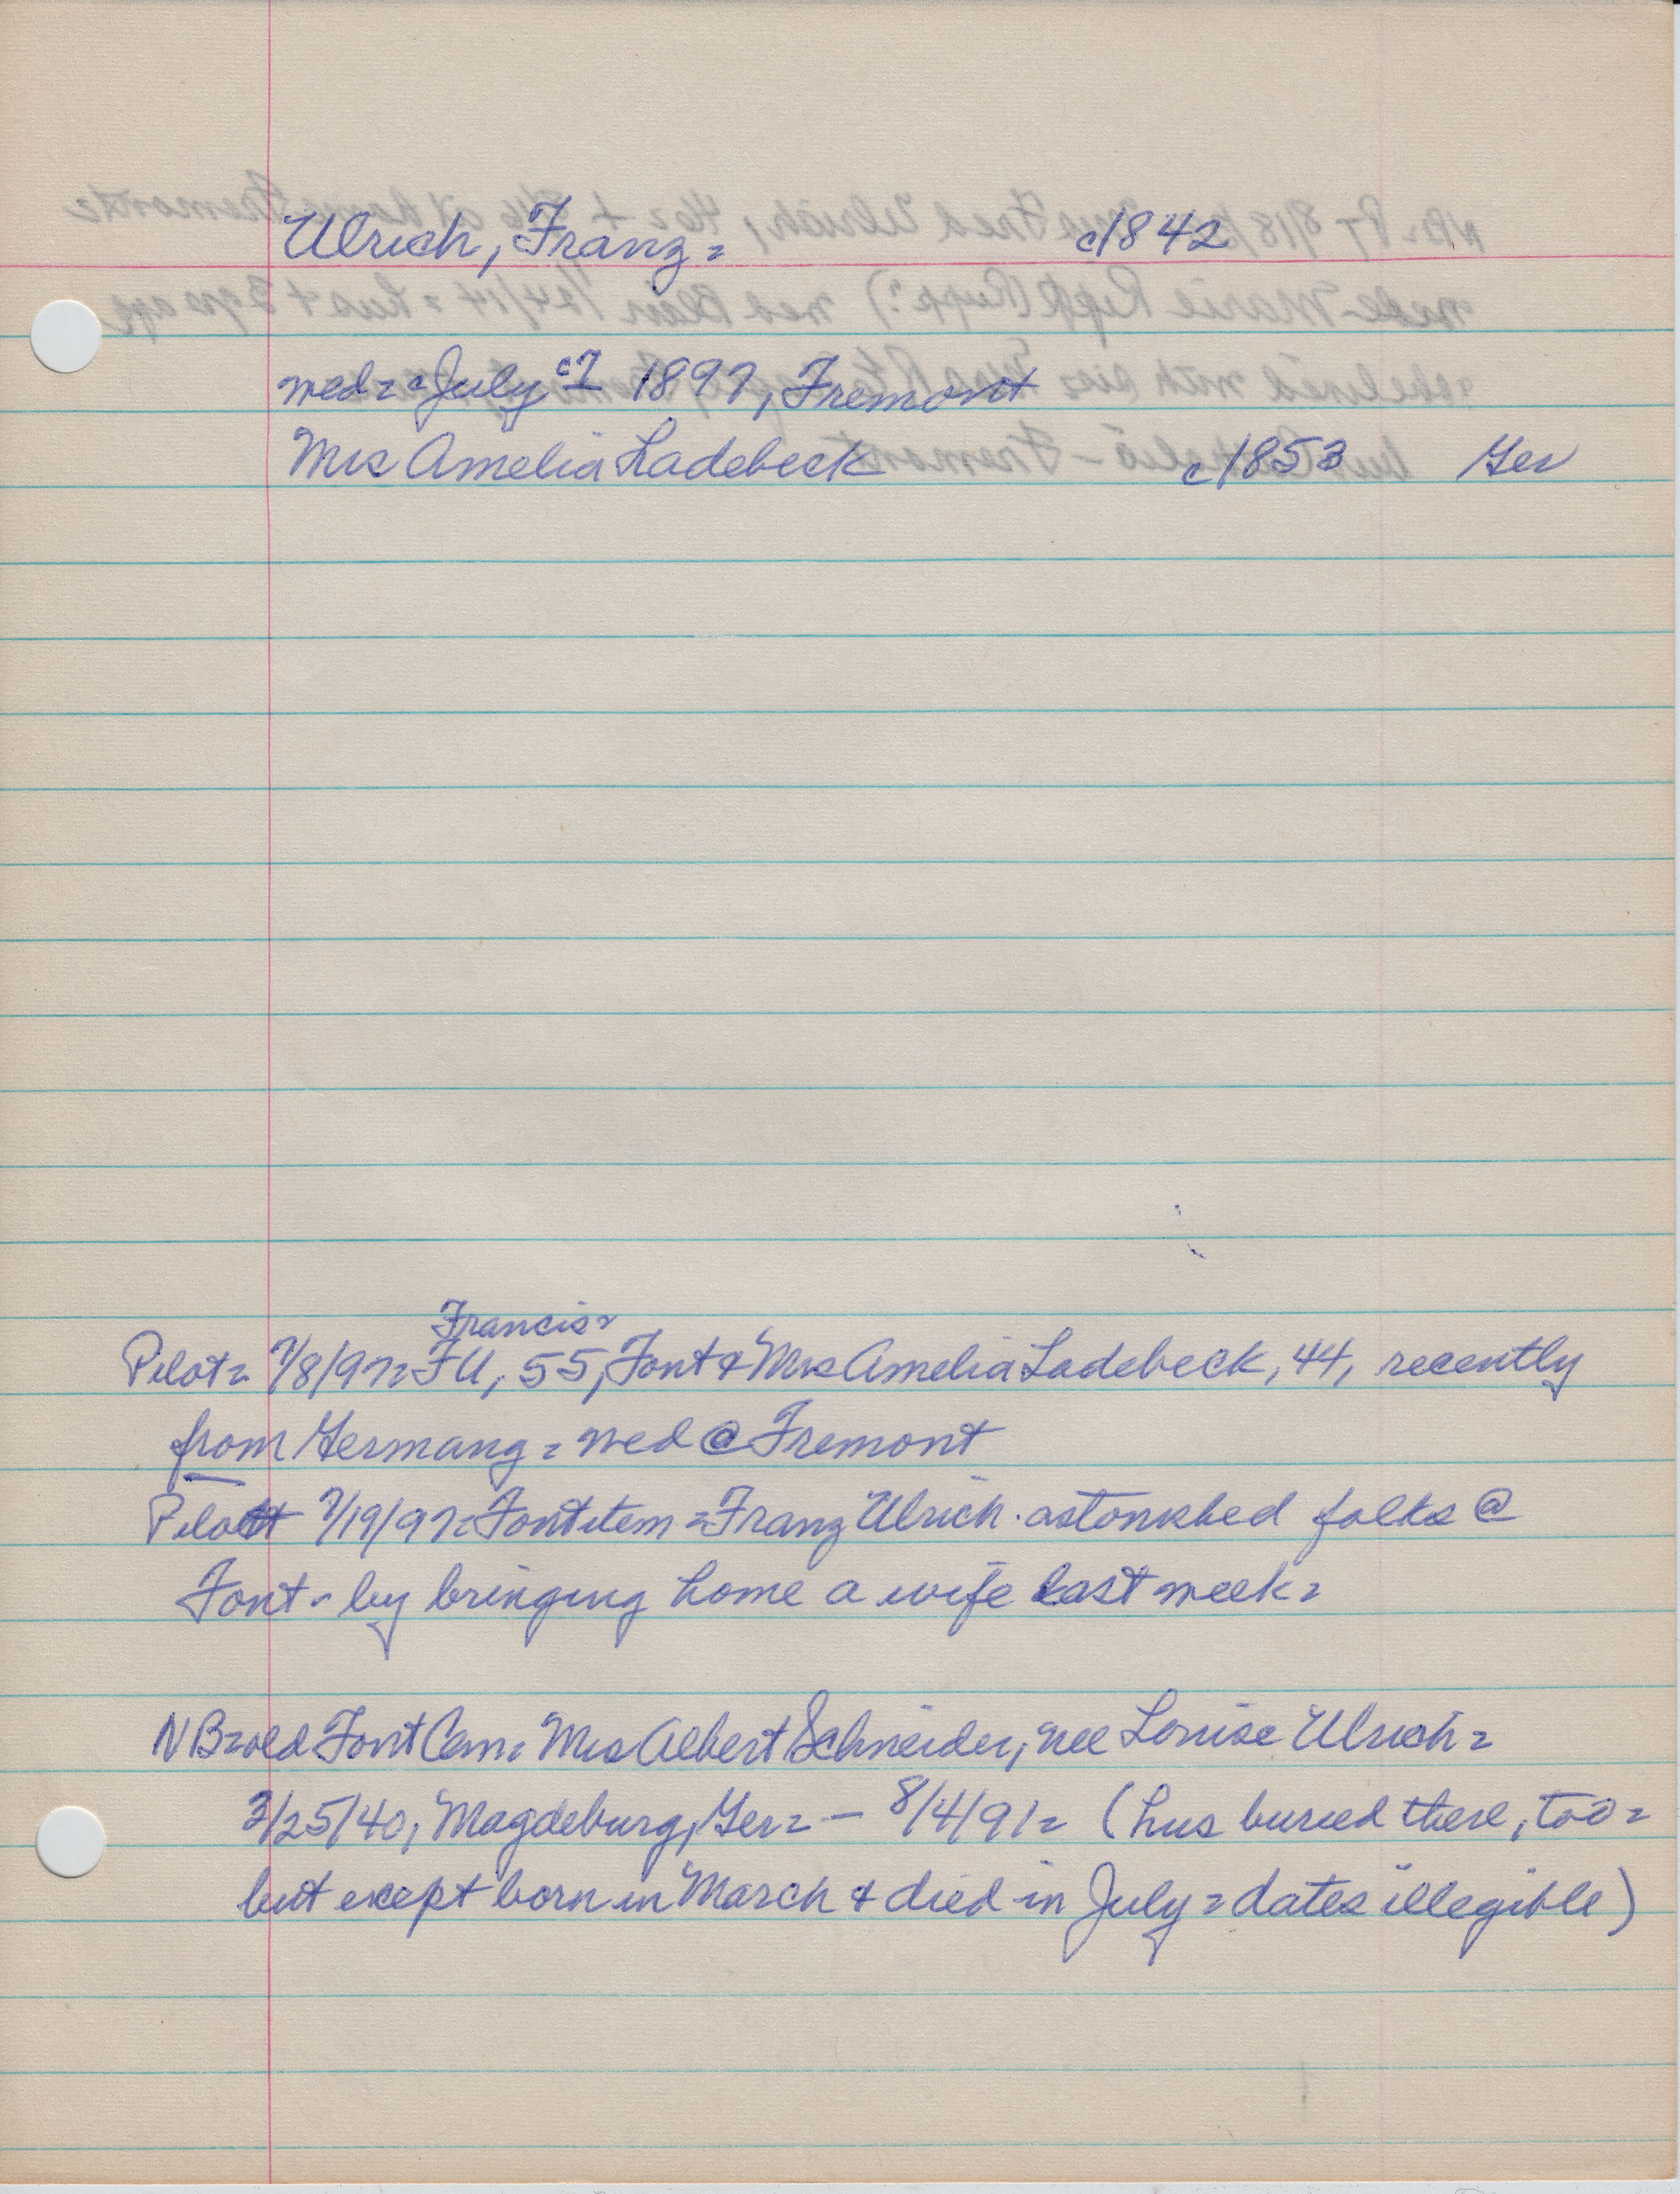 Ulrich, Franz = c1842
wed = c July c7 1897, Fremont
Mrs Amelia Ladebeck c1853 Ger
Francis =
Pilot = 7/8/97 = FU, 55, Font & Mrs Amelia Ladebeck, 44, recently
from Germany = wed @ Fremont
Pilot 7/19/97 = Font item = Franz Ulrich. astonished folks @
Font - by bringing home a wife last week =
NB = old Font Cem = Mrs Albert Schneider, nee Louise Ulrich =
3/25/40, Magdeburg, Ger = - 8/4/91 = (hus buried there, too =
but except born in March & died in July = dates illegible)